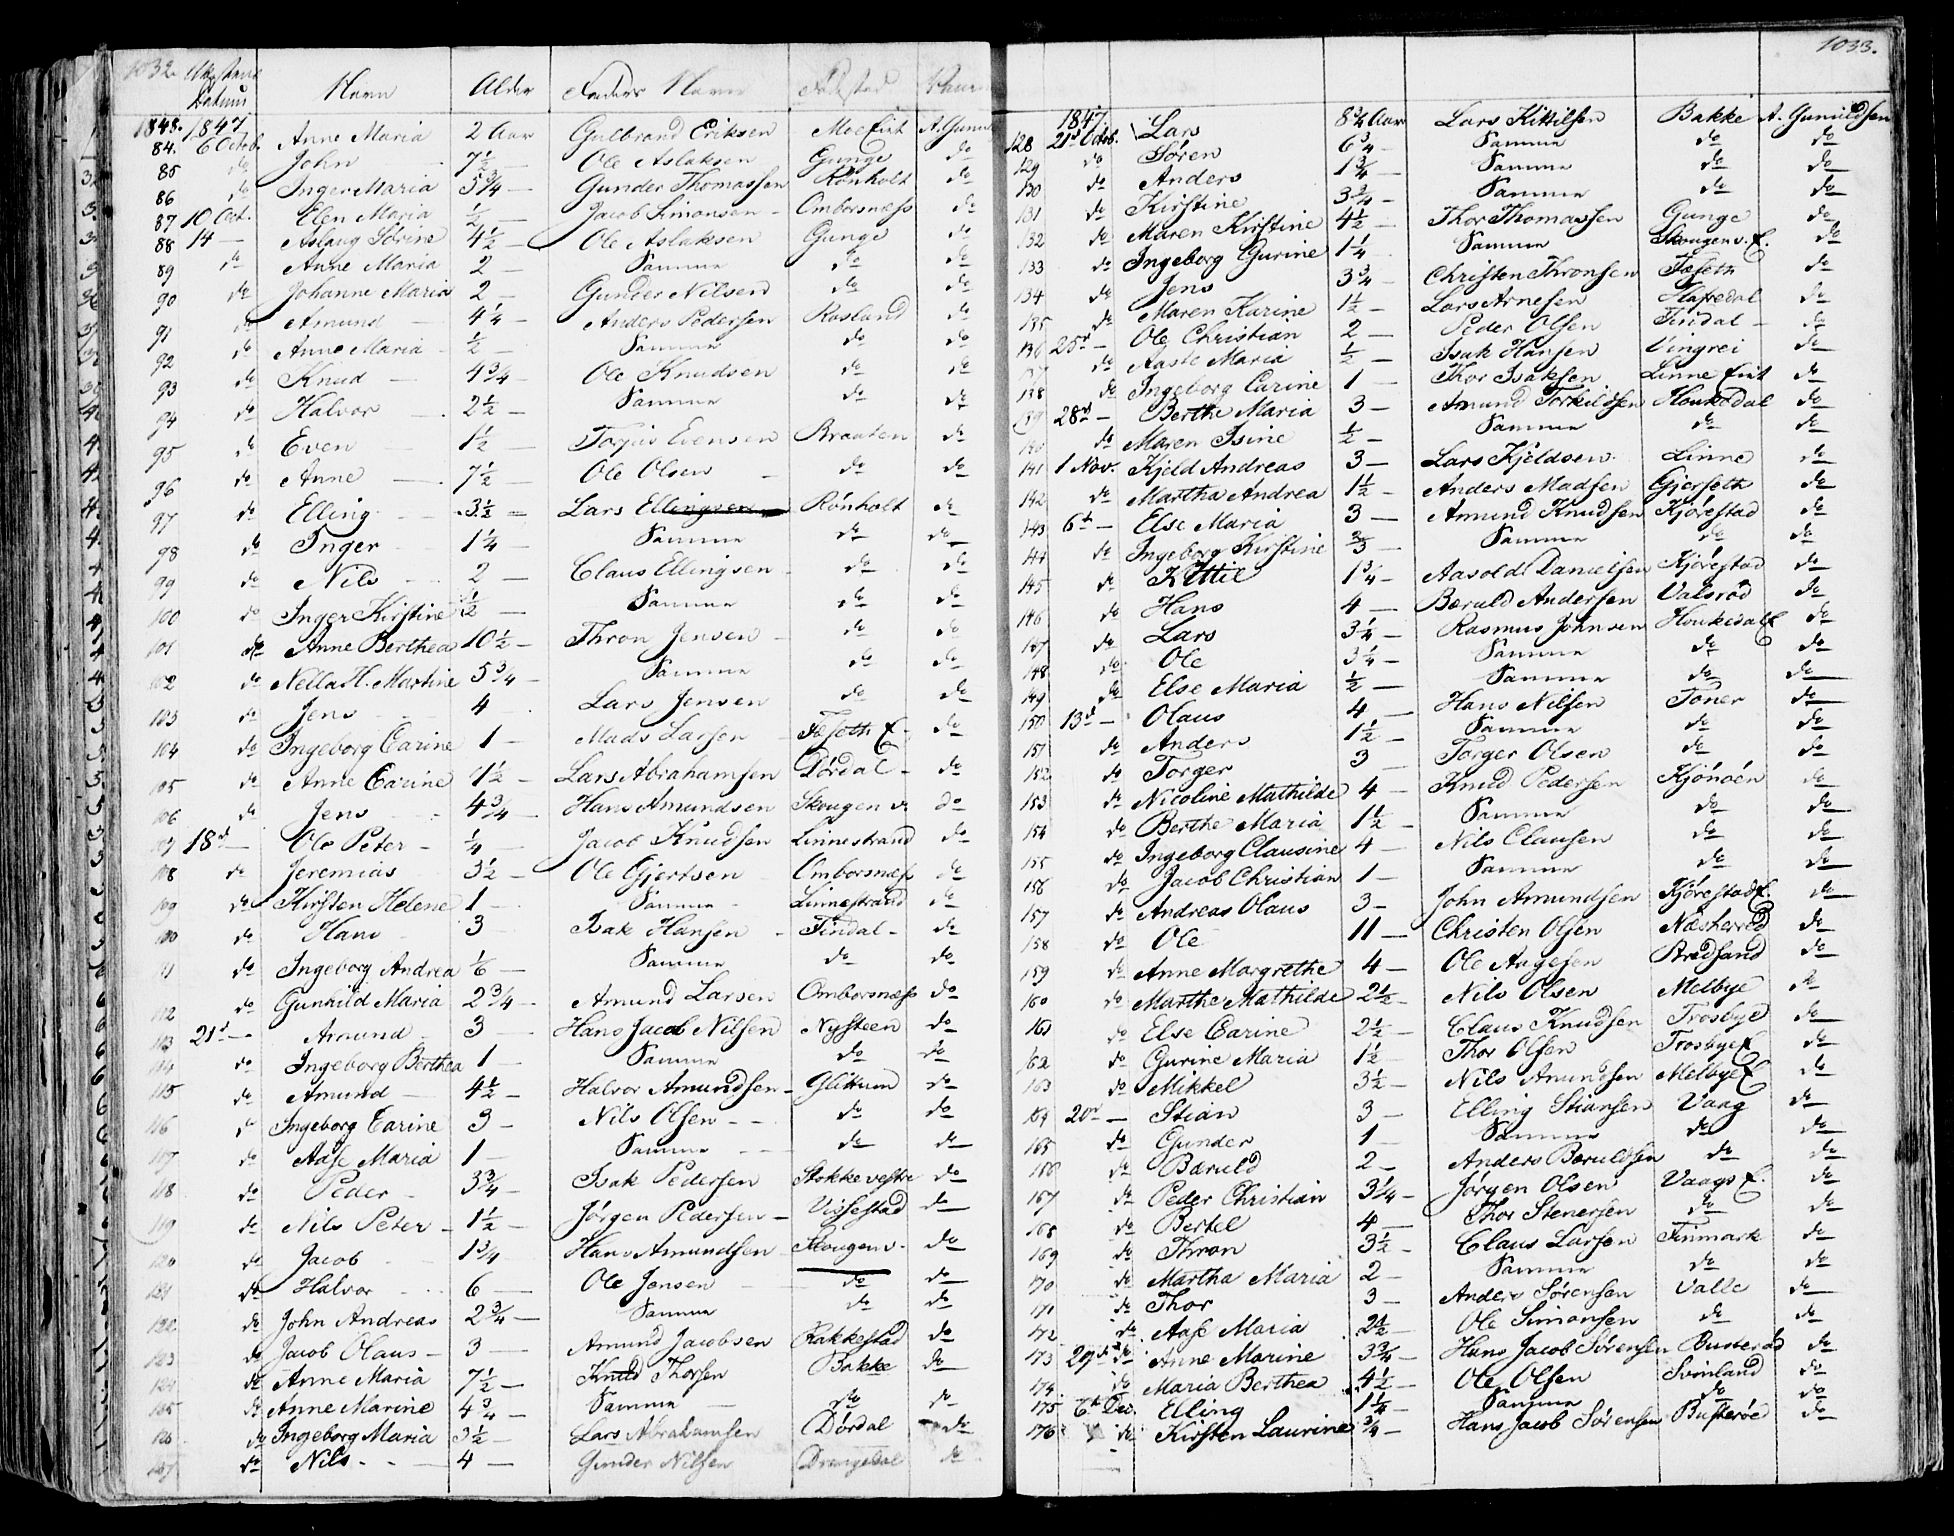 1032.
Datum Navn Alder Faders Navn Vaccin
1848. 1847
84. 6 Octob. Anne Maria 2 Aar Gulbrand Eriksen Moe Eiet A. Gunn
85 do John 7½ — Ole Aslaksen Gunge do
86 do Inger Maria 5¾ — Gunder Thomassen Rönholt do
87 10 Oct. Elen Maria ½ — Jacob Simonsen - Ombórsnæss do
88 14 — Aslaug Sörine 4½ — Ole Aslaksen Gunge do
89 do Anne Maria 2 — Samme do do
90 do Johanne Maria 2 — Gunder Nilsen do do
91 do Amund 4¼ — Anders Pedersen Rosland do
92 do Anne Maria - ½ — Samme do do
93 do Knud — 4¾ — Ole Knudsen do do
94 do Halvor — 2½ — Samme do do
95 do Even 1½ — Torjus Evensen Braaten do
96 do Anne — 7½ — Ole Olsen - do do
97 do Elling 3½ — Lars Ellingsen Rönholt do
98 do Inger 1¼ — Samme do do
99 do Nils 2 — Claus Ellingsen do do
100 do Inger Kirstine ½ — Samme do do
101 do Anne Berthea 10½ — Thron Jensen do do
102 do Nella H. Martine 5¾ — Samme do do
103 do Jens 4 Lars Jensen do do
104 do Ingeborg Carine 1 — Mads Larsen - Foseth E. do
105 do Anne Carine 1½ — Lars Abrahamsen Dördal - do
106 do Jens 4¾ — Hans Amundsen Skougen v. do
107 18d — Ole Peter - ¼ — Jacob Knudsen Linnestrand do
108 do Jeremias 3½ — Ole Gjertsen Omborsnæs do
109 do Kirsten Helene 1 — Samme - Linnestrand do
110 do Hans 3 Isak Hansen - Findal - do
111 do Ingeborg Andrea ⅙ — Samme do do
112 do Gunhild Maria 2¾ — Amund Larsen Omborsnæss do
113 21d — Amund 3 — Hans Jacob Nilsen Nysteen do
114 do Ingeborg Berthea 1 — Samme do do
115 do Amund — 4½ — Halvor Amundsen - Glittum do
116 do Ingeborg Carine 3 — Nils Olsen - - do do
117 do Aase Maria 1 — Samme — do do
118 do Peder - 3¾ — Isak Pedersen Stokkevestre do
119 do Nils Peter - 1½ — Jörgen Pedersen - Vissestad do
120 do Jacob 1¾ Hans Amundsen - Skougen v. do
121 do Halvor 6 — Ole Jensen do do
122 do John Andreas 2¾ — Samme do do
123 do Jacob Olaus - 3 — Amund Jacobsen Rakkestad do
124 do Anne Maria 7½ — Knud Thorsen Bakke do
125 do Anne Marine 4¾ — Samme — do do
126 do Ingeborg Maria 3½ — Lars Abrahamsen Dördal do
127 do Nils - - 4 — Gunder Nilsen Drangedal do
1033.
1847.
128 21d Octob. Lars 8¾ Aar Lars Kittilsen Bakke A. Gunuldsen
129 do Sören 6¾ — Samme do do
130 do Anders 1¾ — Samme do do
131 do Kirstine 3¾ — Samme do do
132 do Maren Kirstine 4½ — Thor Thomassen Gunge do
133 do Ingeborg Gurine 1¼ Samme Skougen v. E. do
134 do Jens 3¾ — Christen Thronsen Foseth do
135 do Maren Karine 1½ — Lars Arnesen Hafredal do
136 25d — Ole Christian 2 — Peder Olsen Findal - do
137 do Aaste Maria ½ — Isak Hansen Vingrei do
138 do Ingeborg Carine 1 — Thor Isaksen Linne Eiet do
139 28d — Berthe Maria 3 — Amund Torkildsen Houkedal do
140 do Maren Isine ½ — Samme do do
141 1 Nov. Kjeld Andreas 3 — Lars Kjeldsen Linne do
142 do Martha Andrea 1½ — Anders Madsen Gjerseth do
143 6t — Else Maria 3 — Amund Knudsen Kjörestad do
144 do Ingeborg Kirstine ⅔ — Samme do do
145 do Kittil 1¾ — Aasold Danielsen Kjörestad do
146 do Hans 4 — Bæruld Andersen Valsröd do
147 do Lars 3¼ — Rasmus Johnsen Houkedal E. do
148 do Ole 3¼ — Samme do do
149 do Else Maria ½ — Samme do do
150 13d — Olaus 4 — Hans Nilsen Toner do
151 do Anders 1½ — Samme do do
152 do Torger 3 — Torger Olsen do do
153 do Nicoline Mathilde 4 — Knud Pedersen Kjönöen do
154 do Berthe Maria 1½ — Samme do do
155 do Ingeborg Clausine 4 — Nils Clausen do do
156 do Jacob Christian 1 — Samme do do
157 do Andreas Olaus 3 — John Amundsen Kjörestad E. do
158 do Ole 11 — Christen Olsen Næsherred do
159 do Anne Margrethe 4 — Ole Aagesen Bredsand do
160 do Marthe Mathilde 2½ — Nils Olsen Melbye do
161 do Else Carine 2½ — Claus Knudsen Trosbye do
162 do Gurine Maria 1½ — Thor Olsen Trosbye E. do
163 do Mikkel 3½ — Nils Amundsen Melbye E. do
164 20d — Stian 3 — Elling Stiansen Vaag do
165 do Gunder 1 — Samme do do
166 do Bæruld 2 — Anders Bæruldsen do do
167 do Peder Christian 3¼ — Jörgen Olsen Vaags E. do
168 do Bertel 4 — Thor Stenersen do do
169 do Thron 3½ — Claus Larsen Finmark do
170 do Martha Maria 2 — Samme do do
171 do Thor 3 — Anders Sörensen Valle do
172 do Aase Maria 2½ — Ole Simonsen do do
173 29d do Anne Marine 3¾ — Hans Jacob Sörensen Busteröd do
174 do Maria Berthea 4½ — Ole Olsen Svinland do
175 6t Dec. Elling 1¼ — Samme do do
176 do Kirsten Laurine ¾ — Hans Jacob Sörensen Busteröe do